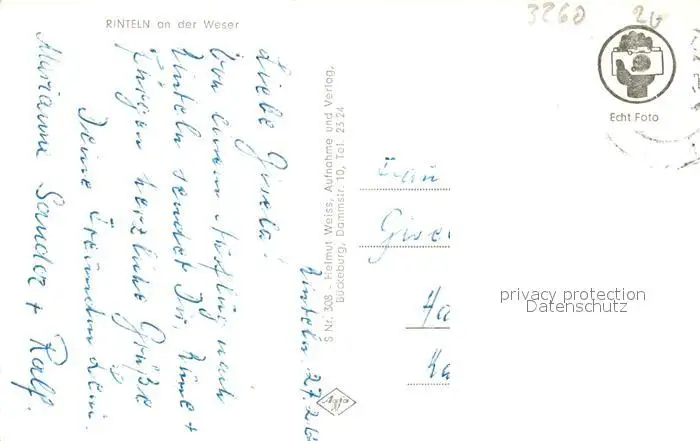 RINTELN an der Weser
3260
Rinteln, 27.2.6
Liebe Gisela!
Von einem Ausflug nach
Rinteln sendet Dir, Rune +
Jürgen herzliche Grüße
Deine Freundin
Marianne Sander + Ralf.
S Nr. 308 - Helmut Weiss, Aufnahme und Verlag,
Bückeburg, Dammstr. 10, Tel. 23 24
Agfa
Echt Foto
Frau
Gise
Ha
privacy protection
Datenschutz